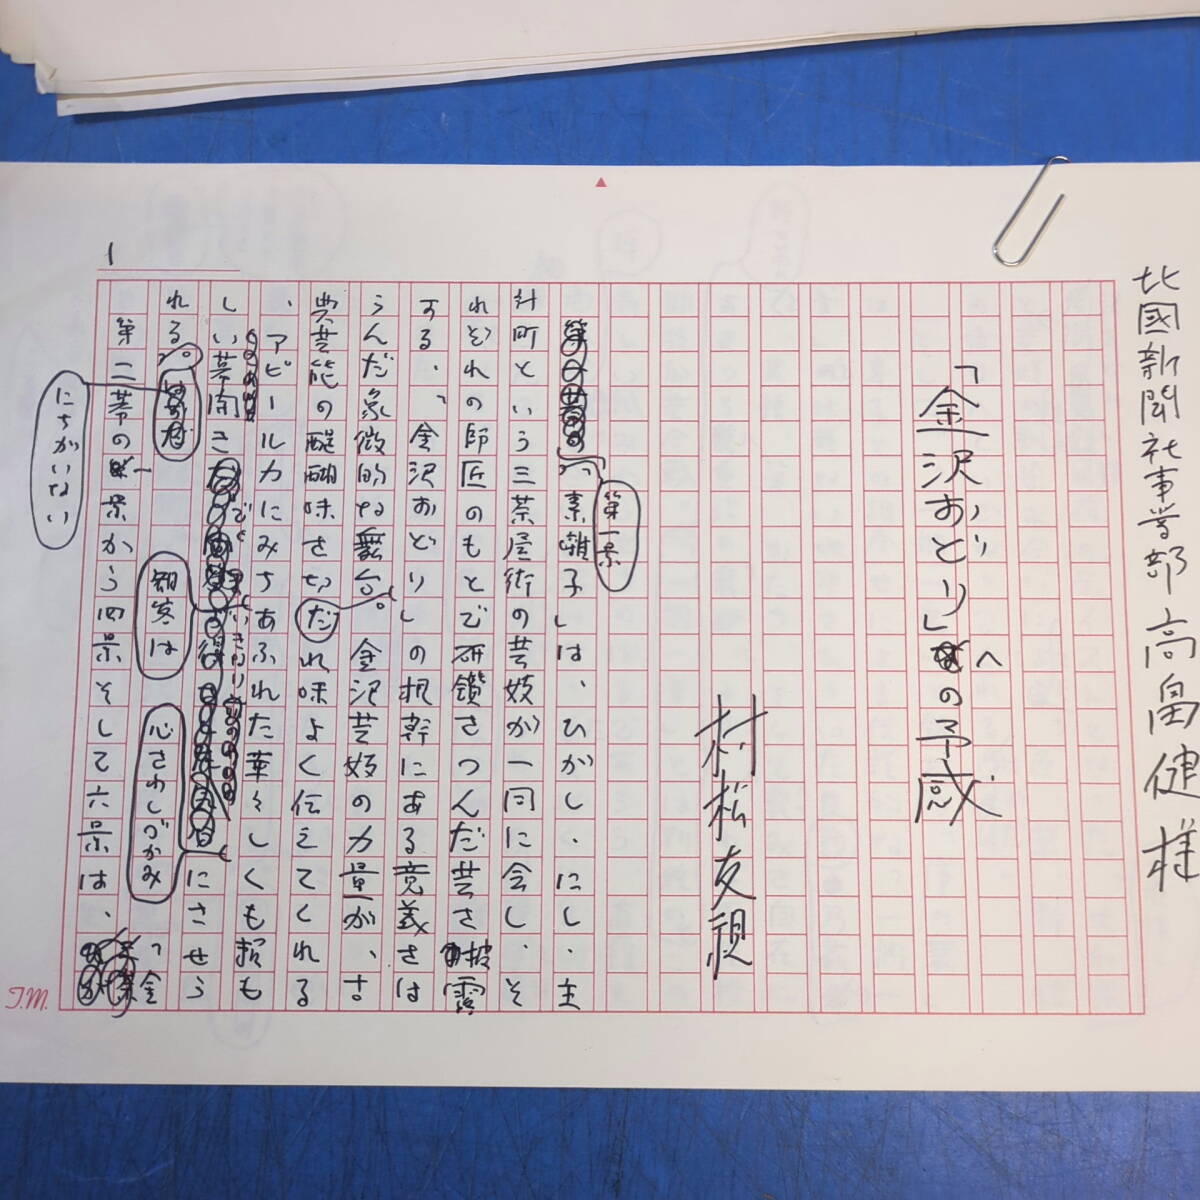 北國新聞社事業部 高畠健様
「金沢おどり」への予感
村松友視
第一景
「素囃子」は、ひがし・にし・主
計町という三茶屋街の芸妓が一同に会し、そ
れぞれの師匠のもとで研鑽をつんだ芸を披露
する、「金沢おどり」の根幹にある意義をは
らんだ象徴的な舞台。金沢芸妓の力量が、古
典芸能の醍醐味を切れ味よく伝えてくれる
、アピール力にみちあふれた華々しくも頼も
しい幕開き
観客は
心をわしづかみ
にさせら
れる
にちがいない
。
第二幕の二景から四景そして六景は、
「金
1
T.M.